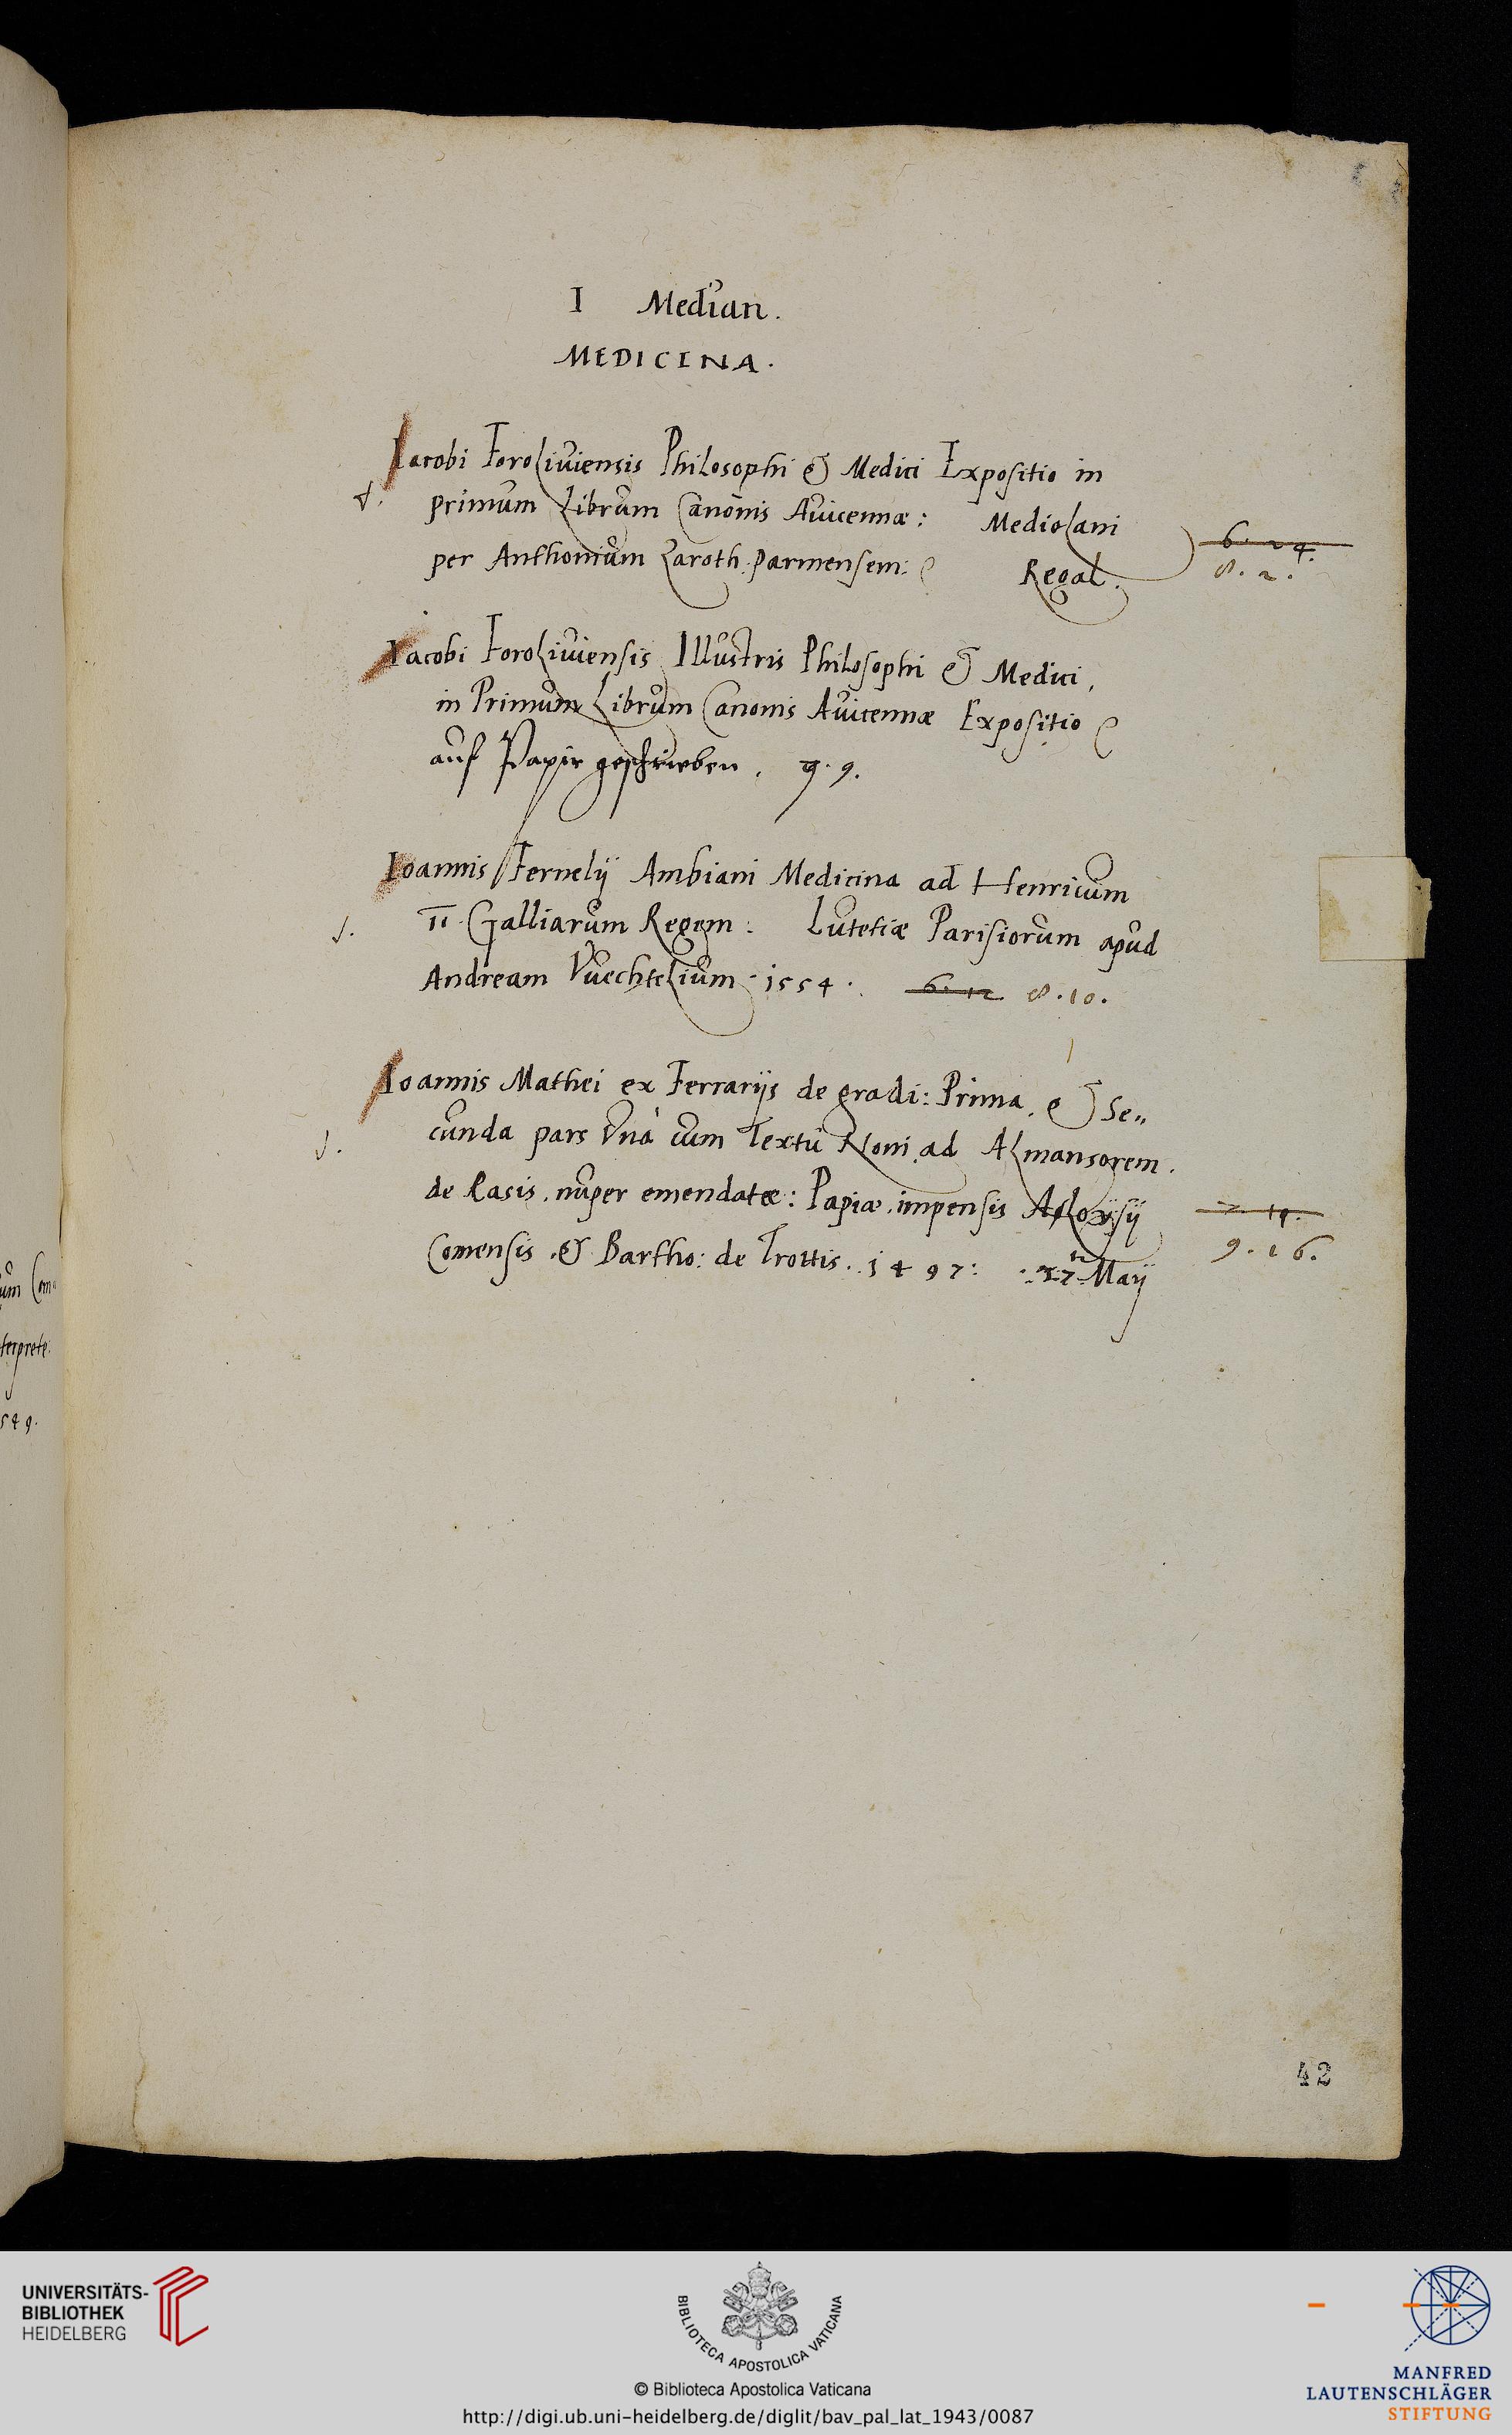 I Median.
MEDICINA.
Iacobi Foroliuiensis Philosophi & Medici Expositio in
primum Librum Canonis Auicennæ: Mediolani
per Anthonium Zaroth. parmensem: Regal.
6. 24.
8. 2.
Iacobi Foroliuiensis Illustris Philosophi & Medici,
in Primum Librum Canonis Auicennæ Expositio
auf Papir geschrieben. 9. 9.
Ioannis Fernelij Ambiani Medicina ad Henricum
II. Galliarum Regem: Lutetiæ Parisiorum apud
Andream Vuechtelium. 1554. 6. 12 8. 10.
Ioannis Mathei ex Ferrarijs de gradi: Prima. & Se„
cunda pars Vnà cum Textu Noni ad Almansorem.
de Rasis. nuper emendatæ: Papiæ. impensis Aloysij
Comensis. & Bartho: de Trottis. 1497: 27 Maij
9. 16.
um Com
terprete
549.
42
UNIVERSITÄTS-
BIBLIOTHEK
HEIDELBERG
BIBLIOTECA APOSTOLICA VATICANA
© Biblioteca Apostolica Vaticana
http://digi.ub.uni-heidelberg.de/diglit/bav_pal_lat_1943/0087
MANFRED
LAUTENSCHLÄGER
STIFTUNG